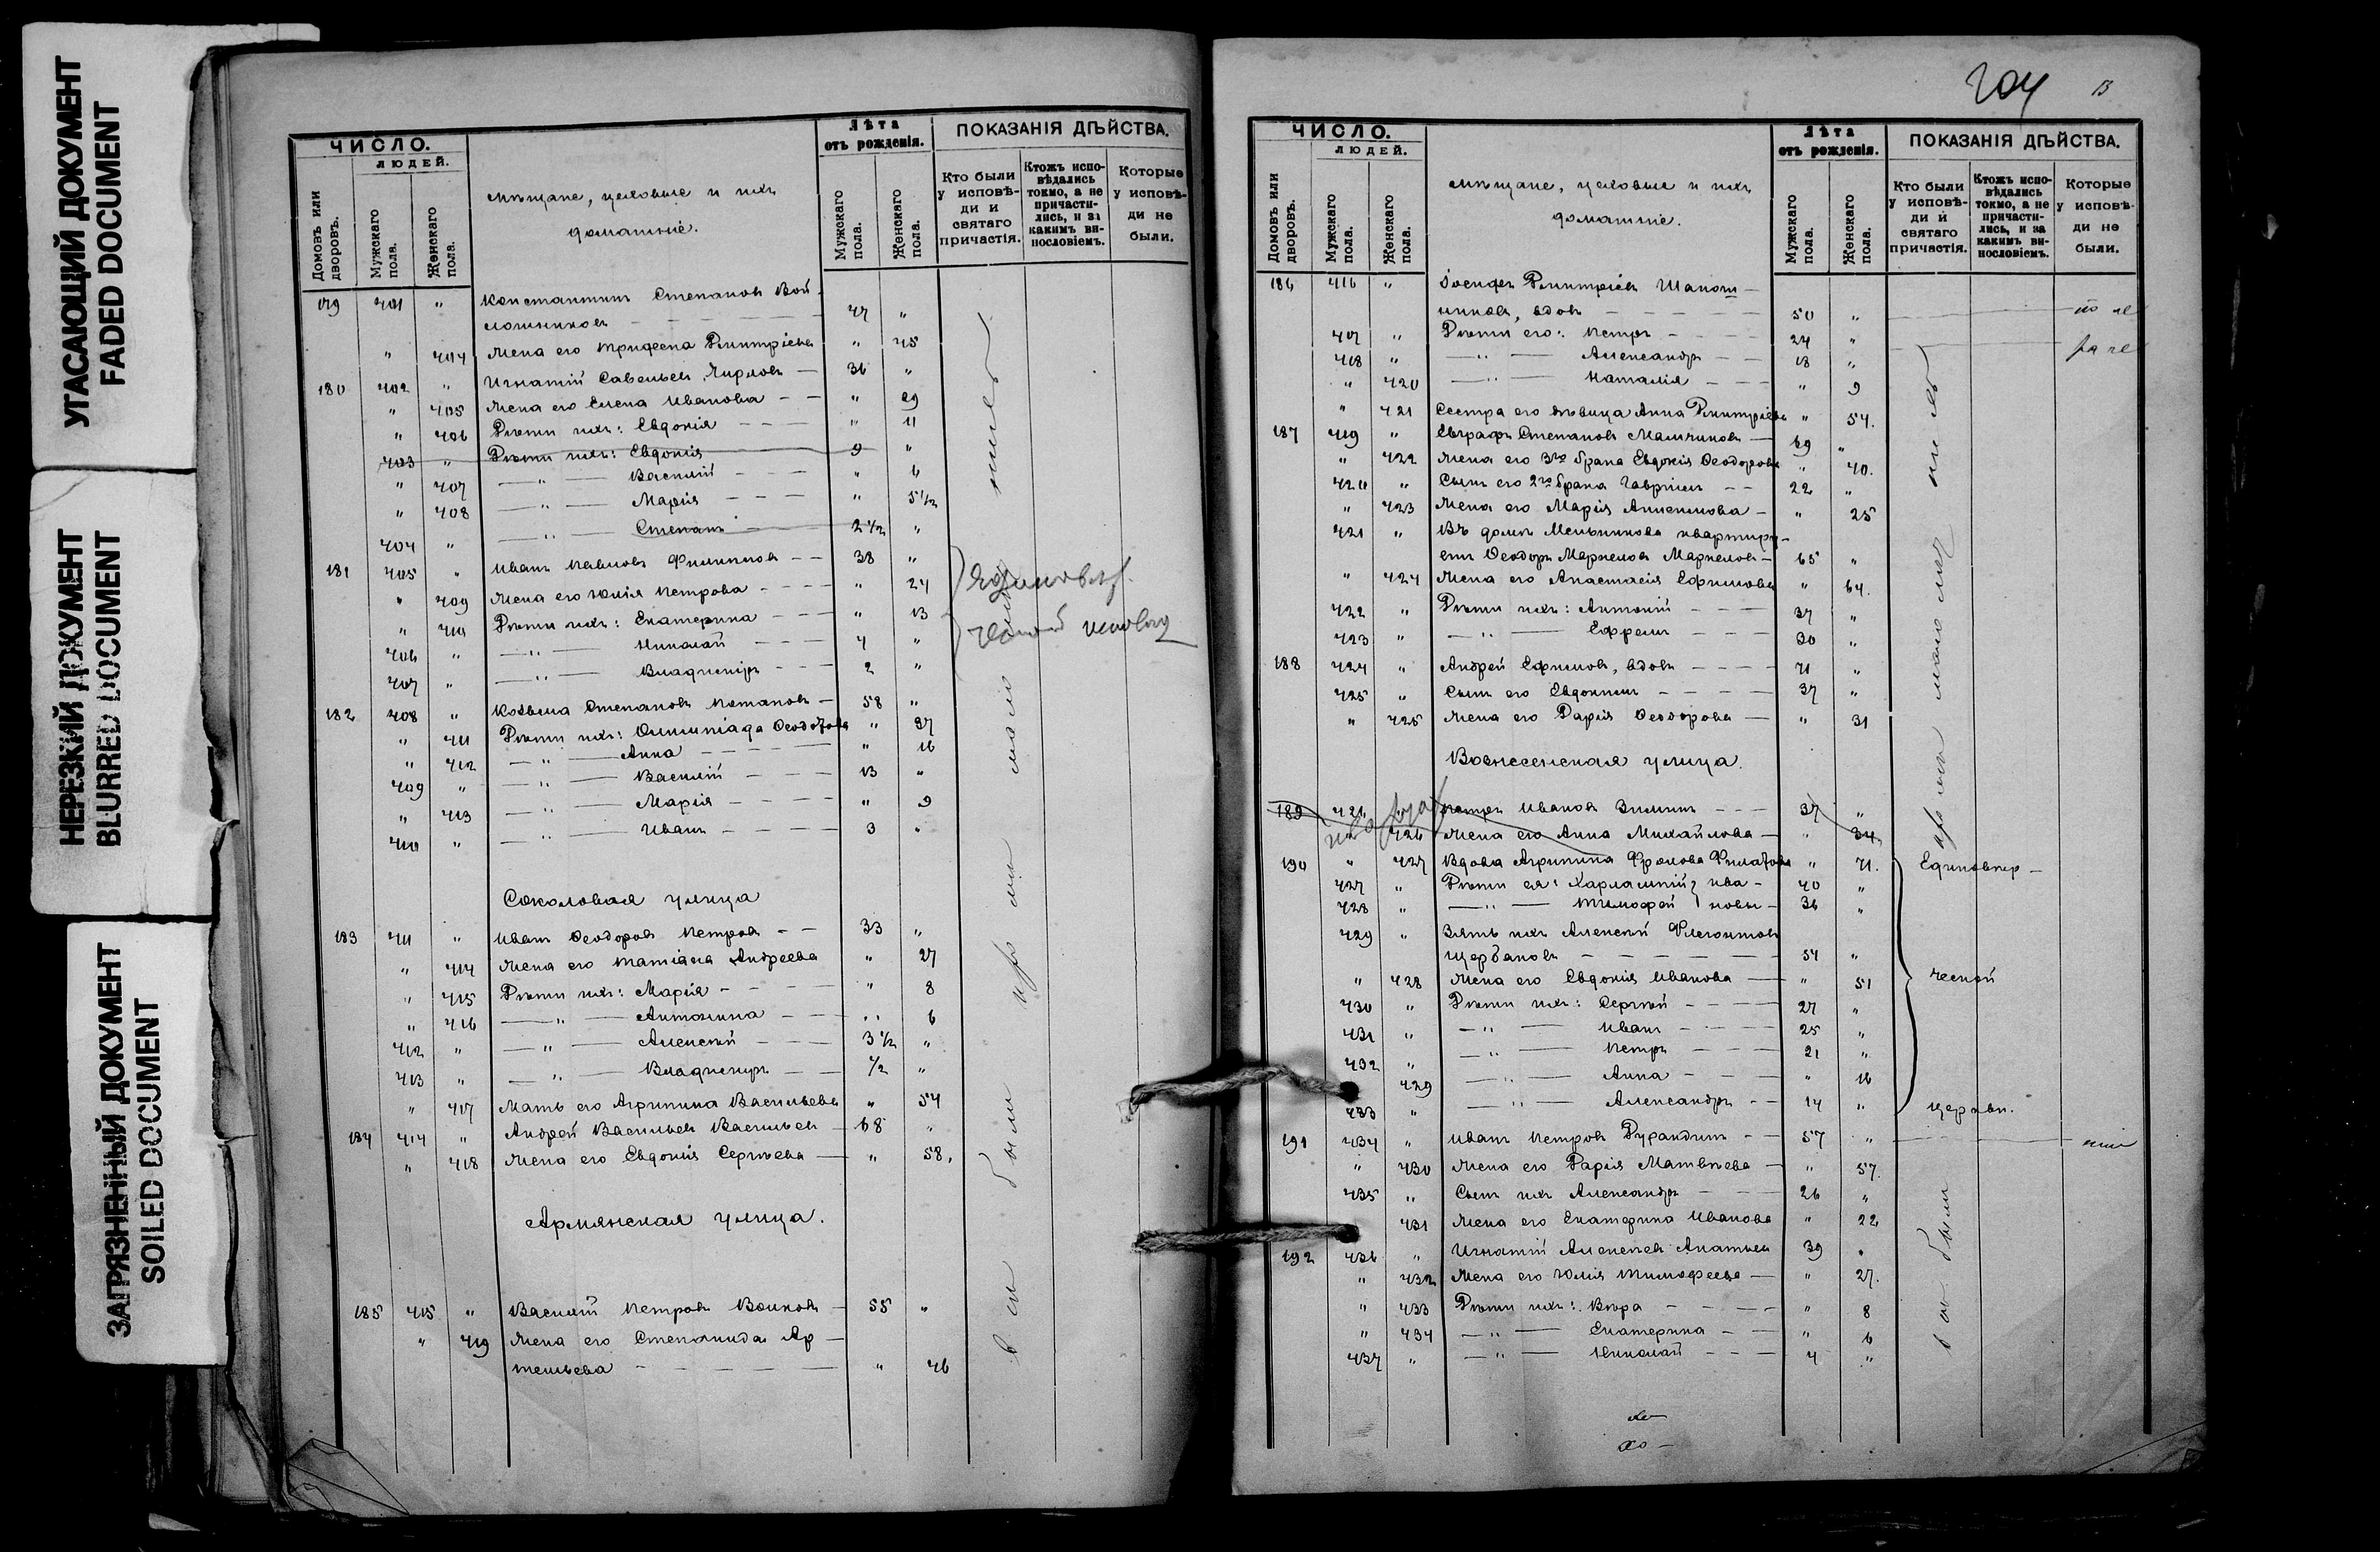 УГАСАЮЩИЙ ДОКУМЕНТ
FADED DOCUMENT
НЕРЕЗКИЙ ДОКУМЕНТ
BLURRED DOCUMENT
ЗАГРЯЗНЕННЫЙ ДОКУМЕНТ
SOILED DOCUMENT
ЧИСЛО.
ЛЮДЕЙ.
Домовъ или дворовъ.
Мужскаго пола.
Женскаго пола.
Мѣщане, цеховые и ихъ
домашніе.
Лѣта
отъ рожденія.
Мужскаго пола.
Женскаго пола.
ПОКАЗАНІЯ ДѢЙСТВА.
Кто были у исповѣди и святаго причастія.
Ктожъ исповѣдались токмо, а не причастились, и за какимъ винословіемъ.
Которые у исповѣди не были.
179 401 " Константинъ Степановъ Вой-
лошниковъ 47 "
" 404 Жена его Трифена Димитріева " 45
180 402 " Игнатій Савельевъ 36 "
" 405 Жена его Елена Иванова " 29
" 406 Дѣти ихъ: Евдокія " 11
403 " Дѣти ихъ: Евдокія 9 "
" 407 —"— Василій " 6
" 408 —"— Марія " 5 1/2
404 " —"— Степанъ 2 1/2 "
181 405 " Иванъ Павловъ Филиповъ 38 "
" 409 Жена его Юлія Петрова " 24
" 410 Дѣти ихъ: Екатерина " 13
406 " —"— Николай 4 "
407 " —"— Владиміръ 2 "
182 408 " Козьма Степановъ Потаповъ 58 "
" 411 Дѣти ихъ: Олимпіада Ѳеодорова " 37
" 412 —"— Анна " 16
409 " —"— Василій 13 "
" 413 —"— Марія " 9
410 " —"— Иванъ 3 "
Соколовая улица
183 411 " Иванъ Ѳеодоровъ Петровъ 33 "
" 414 Жена его Татіана Андреева " 27
" 415 Дѣти ихъ: Марія " 8
" 416 —"— Антонина " 6
412 " —"— Алексѣй 3 1/2 "
413 " —"— Владиміръ 1/2 "
" 417 Мать его Агрипина Васильева " 54
184 414 " Андрей Васильевъ Васильевъ 68 "
" 418 Жена его Евдокія Сергѣева " 58.
Армянская улица.
185 415 " Василій Петровъ Волковъ 55 "
" 419 Жена его Степанида Ар-
темьева " 46
204
13
ЧИСЛО.
ЛЮДЕЙ.
Домовъ или дворовъ.
Мужскаго пола.
Женскаго пола.
Мѣщане, цеховые и ихъ
домашніе.
Лѣта
отъ рожденія.
Мужскаго пола.
Женскаго пола.
ПОКАЗАНІЯ ДѢЙСТВА.
Кто были у исповѣди и святаго причастія.
Ктожъ исповѣдались токмо, а не причастились, и за какимъ винословіемъ.
Которые у исповѣди не были.
186 416 " Іосифъ Димитріевъ Шапош-
никовъ, вдовъ 50 "
417 " Дѣти его: Петръ 24 "
418 " —"— Александръ 13 "
" 420 —"— Наталія " 9
" 421 Сестра его дѣвица Анна Димитріева " 54.
187 419 " Евграфъ Степановъ 69 "
" 422 Жена его 3го брака Евдокія Ѳеодорова " 40.
420 " Сынъ его 2го брака Гавріилъ 22 "
" 423 Жена его Марія " 25
421 " Въ домѣ Мельникова квартиру-
етъ Ѳеодоръ Маркеловъ Маркеловъ 65 "
" 424 Жена его Анастасія Ефимова " 64.
422 " Дѣти ихъ: Антоній 37 "
423 " —"— Ефремъ 30 "
188 424 " Андрей Ефимовъ, вдовъ 71 "
425 " Сынъ его Евдокимъ 37 "
" 425 Жена его Дарія Ѳеодорова " 31
Вознесенская улица.
189 426 Петръ Ивановъ Зиминъ 37 "
" 426 Жена его Анна Михайлова " 34
190 " 427 Вдова Агрипина Фролова Филатова " 71.
Единовѣр-
427 " Дѣти ея: Харлампій Ива- 40 "
428 " —"— Тимофей новы 36 "
429 " Зять ихъ Алексѣй Флегонтовъ
Щербаковъ 54 "
" 428 Жена его Евдокія Иванова " 51
ческой
430 " Дѣти ихъ: Сергѣй 27 "
431 " —"— Иванъ 25 "
432 " —"— Петръ 21 "
429 —"— Анна " 16
433 " —"— Александръ 14 "
церкви.
191 434 " Иванъ Петровъ Дурандинъ 57 "
" 430 Жена его Дарія Матвѣева " 57.
435 " Сынъ ихъ Александръ 26 "
431 Жена его Екатерина Иванова " 22
192 436 " Игнатій Алексѣевъ Ананьевъ 39 "
" 432 Жена его Юлія Тимофеева " 27.
" 433 Дѣти ихъ: Вѣра " 8
" 434 —"— Екатерина " 6
437 " —"— Николай 4 "